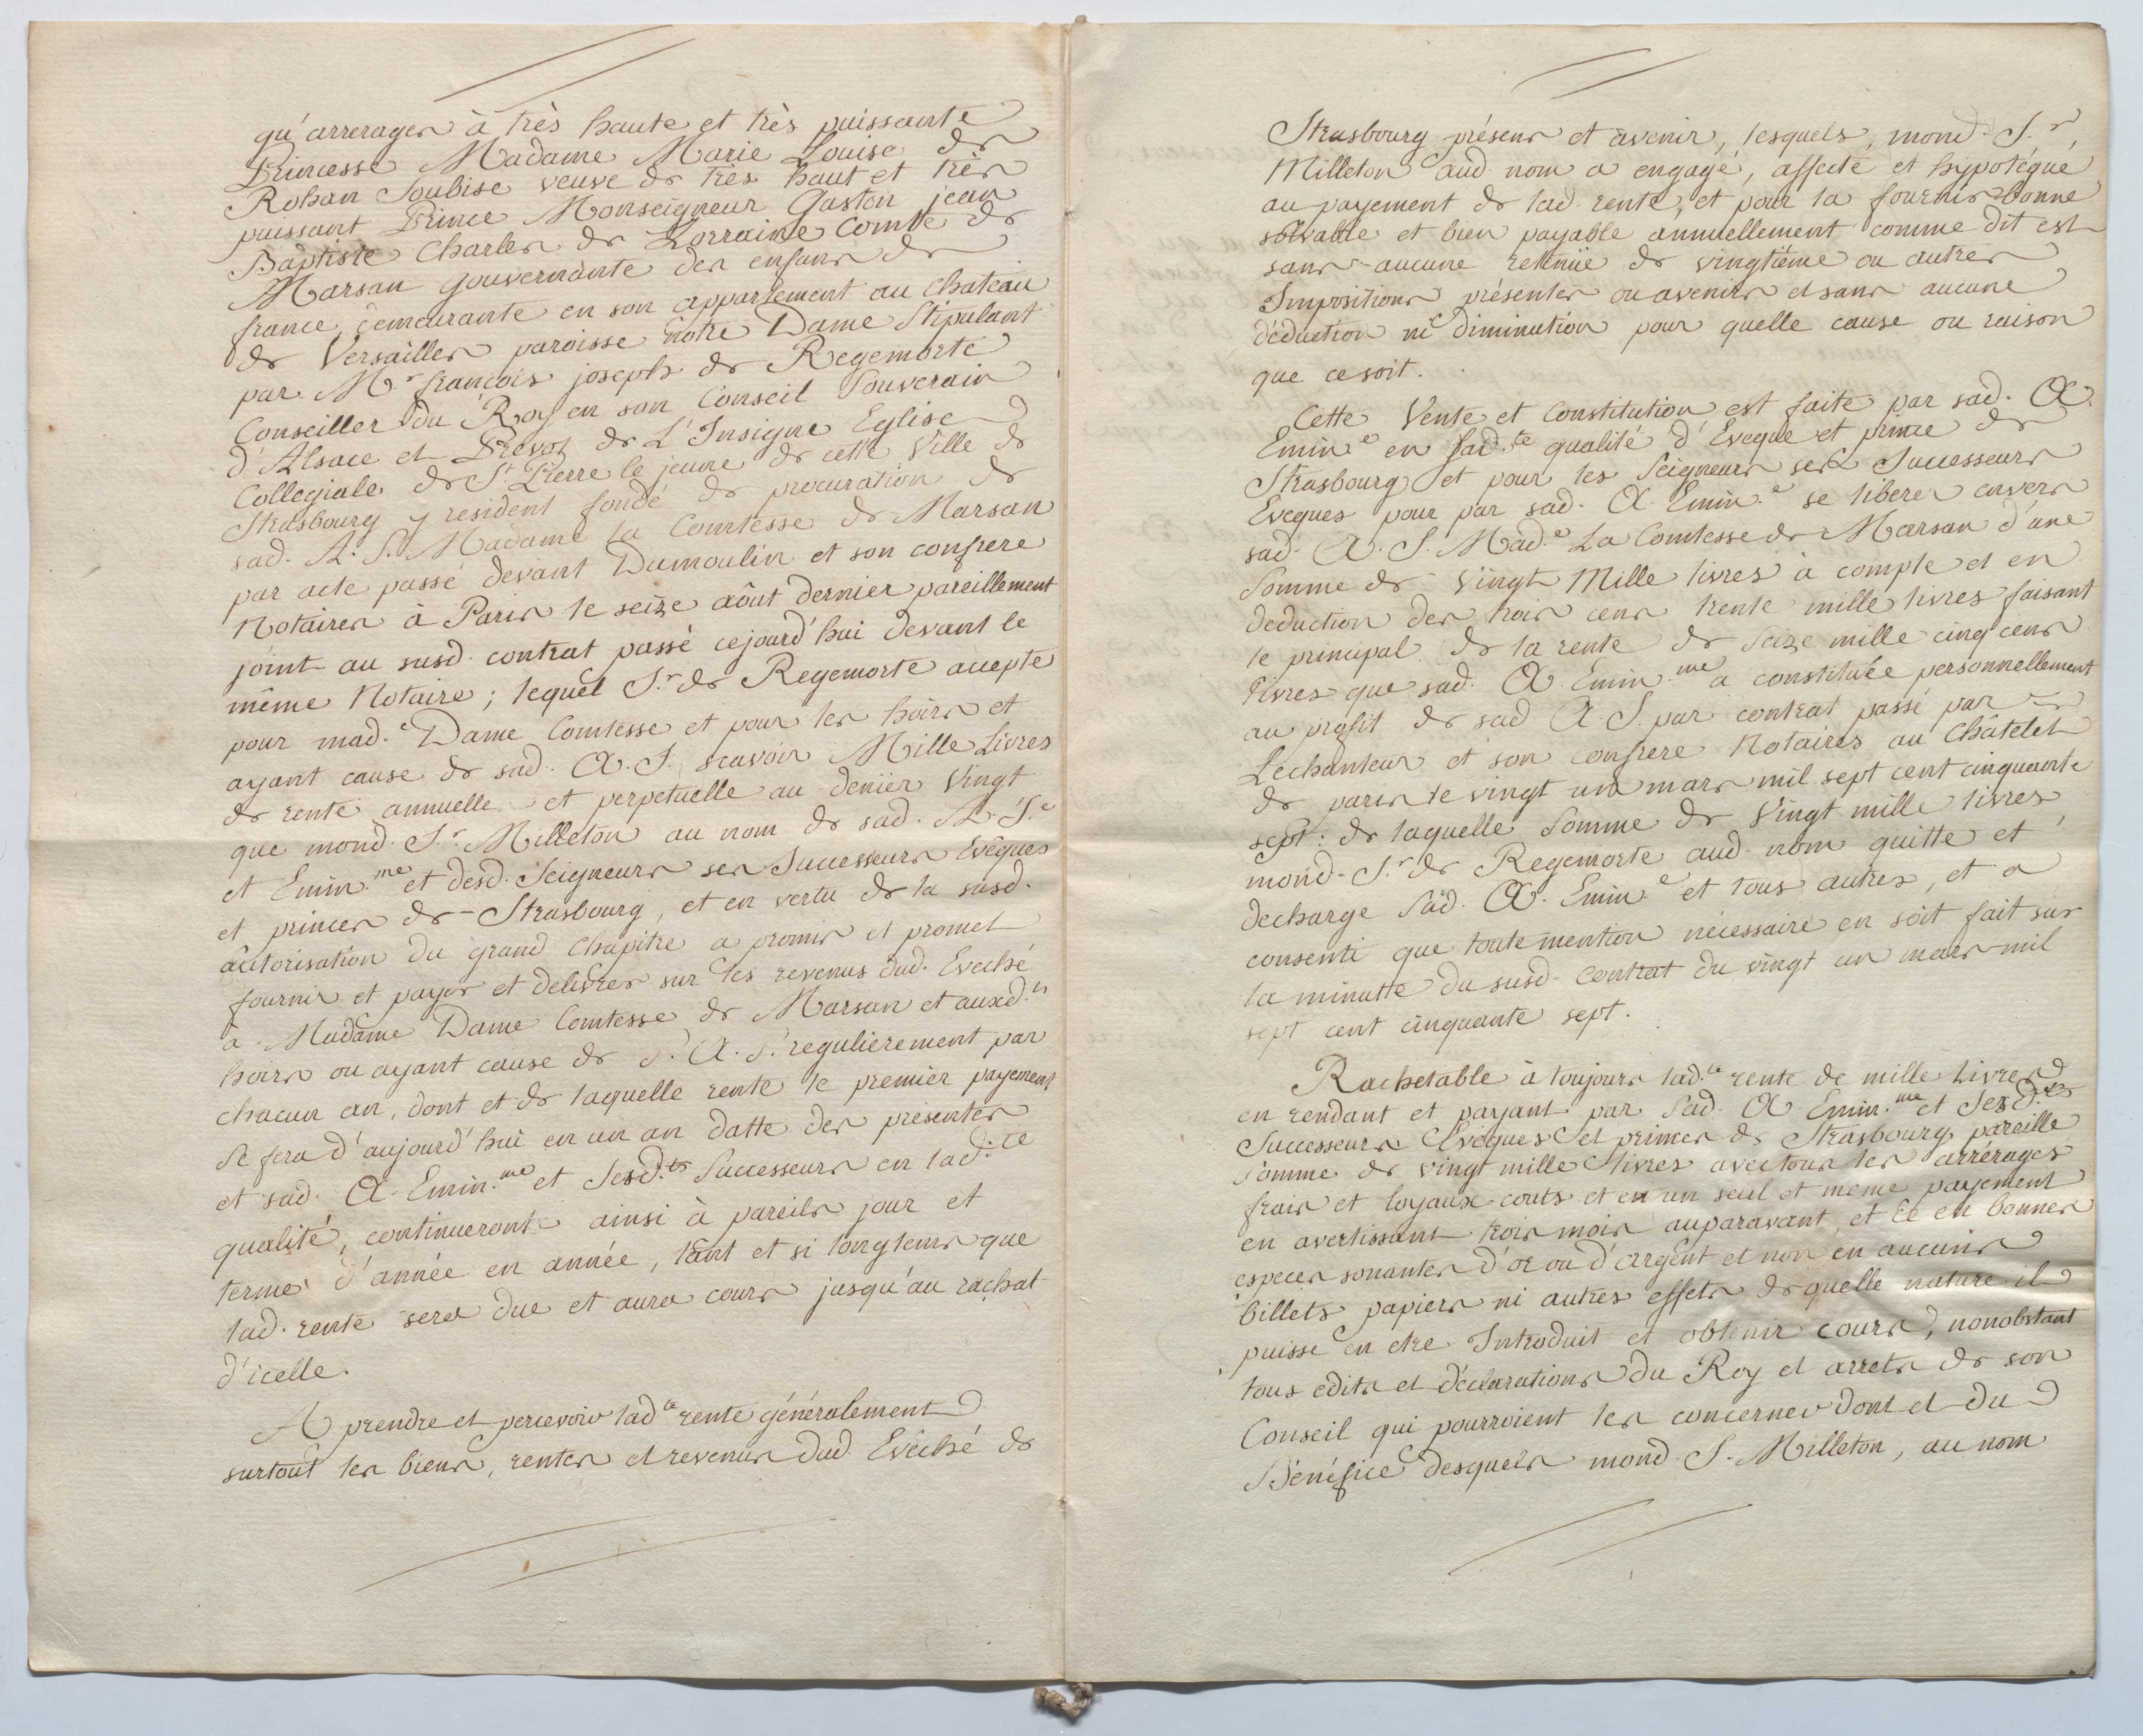 qu'arrerages à très haute et très puissante
Princesse Madame Marie Louise de
Rohan Soubise veuve de très haut et très
puissant Prince Monseigneur Gaston jean
Baptiste Charles de Lorraine Comte de
Marsan gouvernante des enfans de
france, demeurante en son appartement au chateau
de Versailles paroisse notre Dame Stipulant
par M.r françois joseph de Regemorte
Conseiller du Roy en son Conseil Souverain
d'Alsace et Prevot de L'Insigne Eglise
Collegiale de St Pierre le jeune de cette Ville de
Strasbourg y resident fondé de procuration de
sad. A. S. Madame la Comtesse de Marsan
par acte passé devant Dumoulin et son confrere
Notaires à Paris le seize aôut dernier pareillement
joint au susd. contrat passé cejourd'hui devant le
même Notaire ; lequel S.r de Regemorte accepte
pour mad.e Dame Comtesse et pour les hoirs et
ayant cause de sad. A. S. scavoir Mille Livres
de rente annuelle et perpetuelle au denier Vingt
que mond. S.r Milleton au nom de sad. A. S.e
et Emin.me et desd. Seigneurs ses Successeurs Evêques
et princes de Strasbourg, et en vertu de la susd.
autorisation du grand Chapitre a promis et promet
fournir et payer et delivrer sur les revenus dud. Evêché
à Madame Dame Comtesse de Marsan et auxd.ts
hoirs ou ayant cause de S. A. S. regulierement par
chacun an, dont et de laquelle rente le premier payement
se fera d'aujourd'hui en un an datte des presentes
et sad. A. Emin.me et Sesd.ts Successeurs en lad.te
qualité, continueront ainsi à pareils jour et
terme d'année en année, tant et si longtems que
lad. rente sera due et aura cours jusqu'au rachat
d'icelle.
A prendre et percevoir lad.te rente généralement
surtout les biens, rentes et revenus dud. Evêché de
Strasbourg présens et avenir, lesquels, mond. S.r
Milleton aud. nom a engagé, affecté et hypotéqué
au payement de lad. rente, et pour la fournir bonne
solvable et bien payable annuellement comme dit est
sans aucune retenüe de vingtiéme ou autres
Impositions présentes ou avenirs et sans aucune
déduction ni diminution pour quelle cause ou raison
que ce soit.
Cette Vente et Constitution est faite par sad. A.
Emin.e en sad.te qualité d'Eveque et prince de
Strasbourg et pour les Seigneurs ses Successeurs
Eveques pour par sad. A. Emin.e se liberer envers
sad. A. S. Mad.e La Comtesse de Marsan d'une
Somme de Vingt Mille livres à compte et en
deduction des trois cens trente mille livres faisant
le principal de la rente de Seize mille cinq cens
livres que sad. A. Emin.me a constituée personnellement
au profit de sad A. S. par contrat passé par
Lechanteur et son confrere Notaires au Châtelet
de paris le vingt un mars mil sept cent cinquante
sept : de laquelle Somme de Vingt mille livres
mond. S.r de Regemorte aud. nom quitte et
decharge sad. A. Emin.e et tous autres, et a
consenti que toute mention nécessaire en soit fait sur
la minutte du susd. contrat du vingt un mars mil
sept cent cinquante sept.
Rachetable à toujours lad.te rente de mille Livres
en rendant et payant par Sad. A. Emin.me et Sesd.ts
Successeurs Evêques et princes de Strasbourg pareille
somme de vingt mille livres avec tous les arrérages
frais et loyaux couts et en un seul et meme payement
en avertissant trois mois auparavant, et ce en bonnes
especes sonantes d'or ou d'argent et non en aucuns
billets, papiers ni autres effets de quelle nature il
puisse en etre Introduit et obtenir cours, nonobstant
tous edits et déclarations du Roy et arrets de son
Conseil qui pourroient les concerner dont et du
Bénéfice desquels mond. S. Milleton, au nom